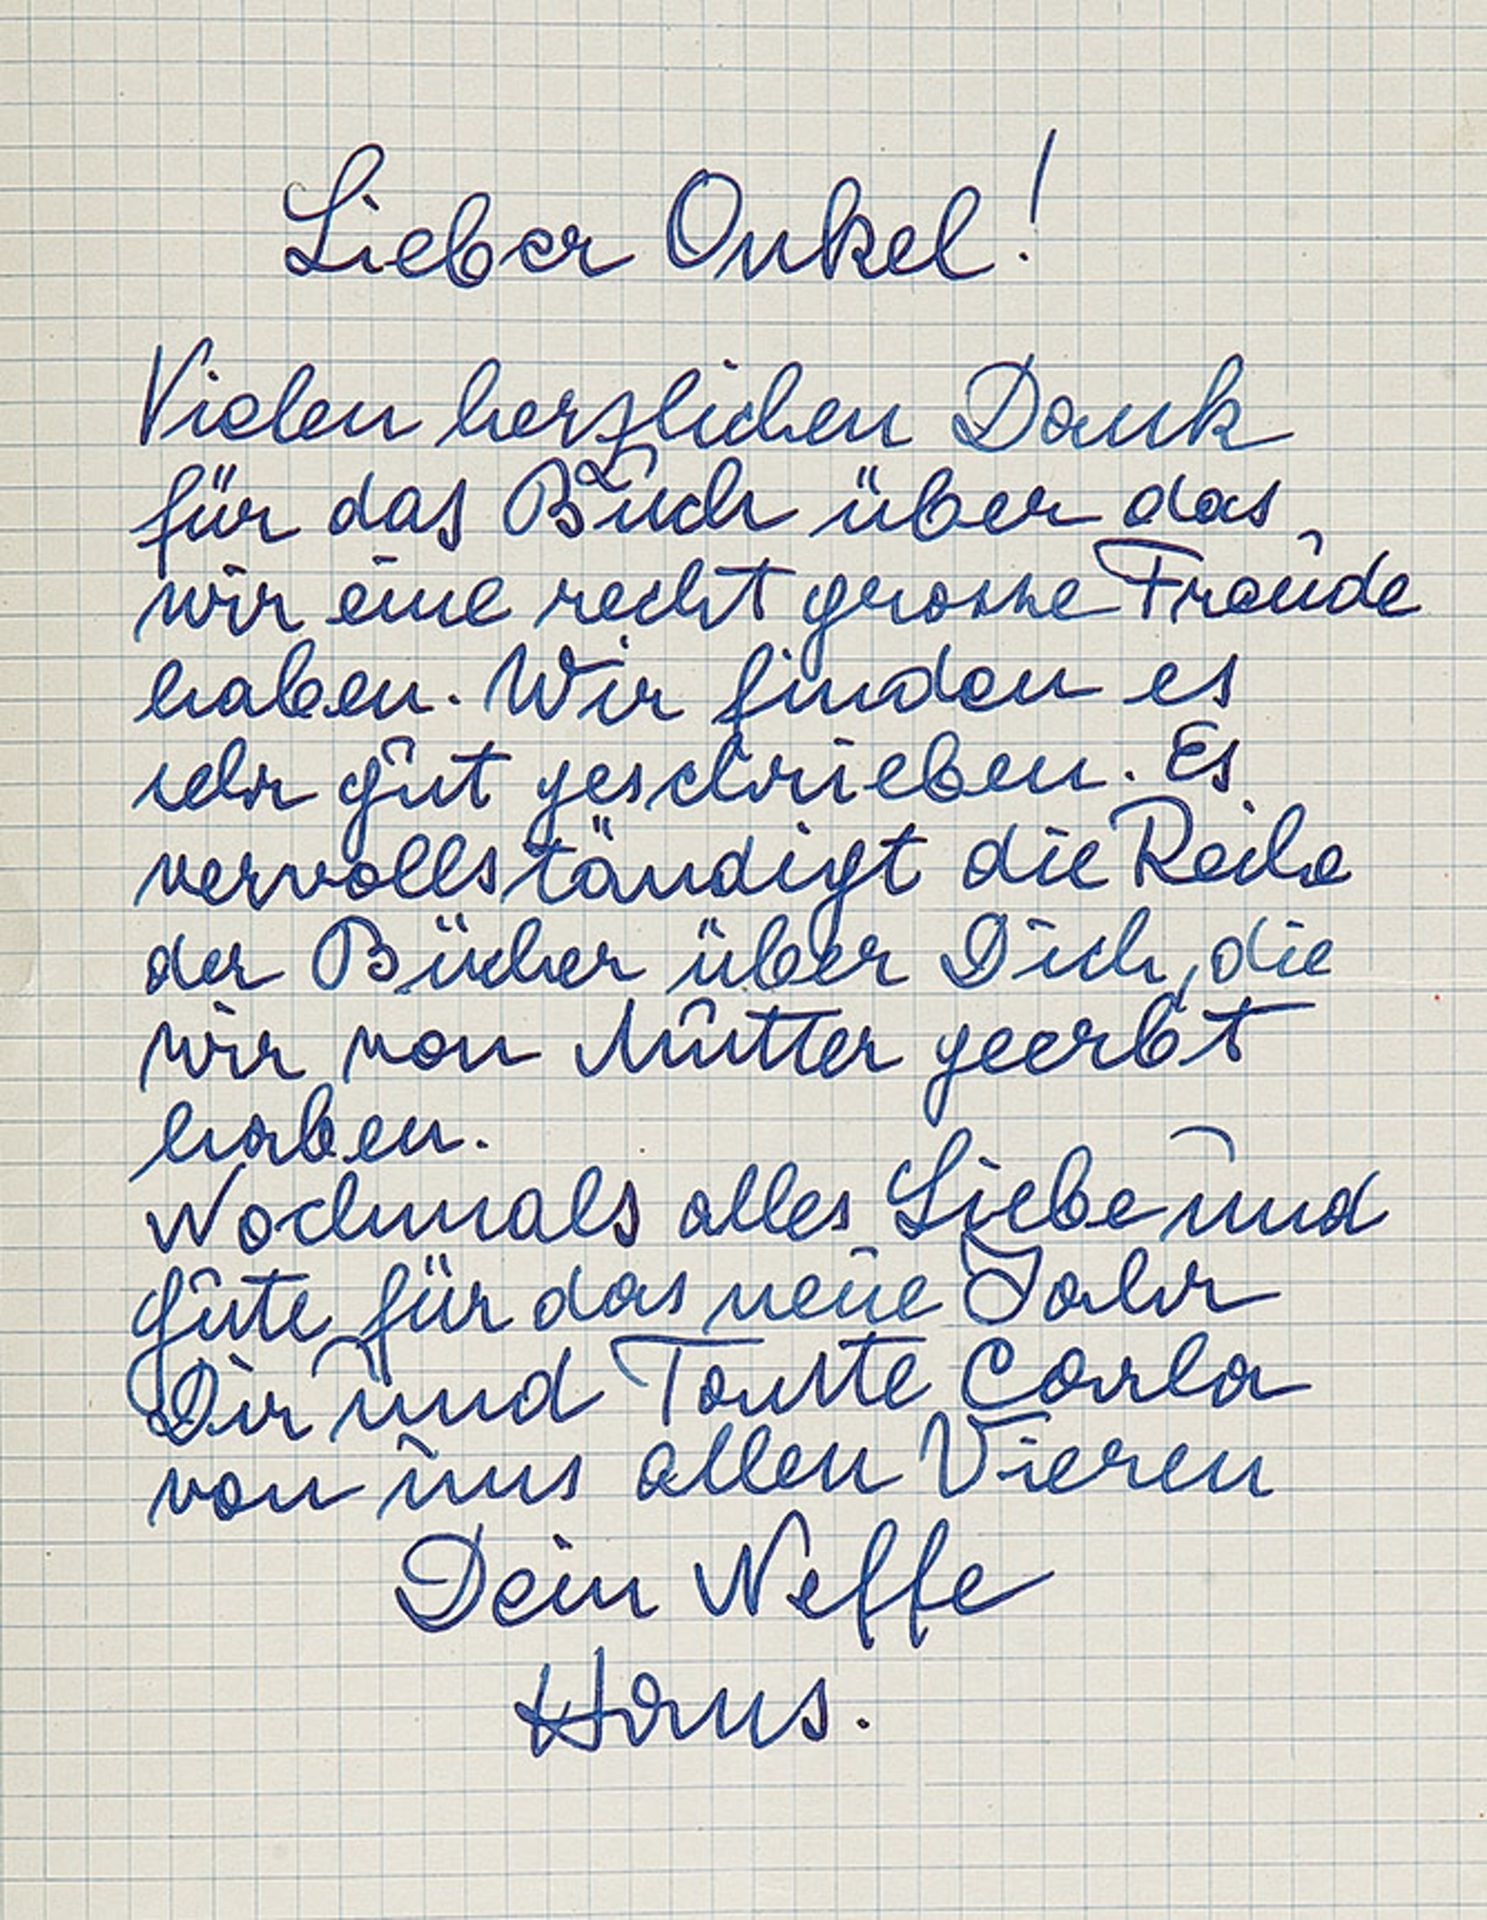 Lieber Onkel!
Vielen herzlichen Dank
für das Buch über das
wir eine recht grosse Freude
haben. Wir finden es
sehr gut geschrieben. Es
vervollständigt die Reihe
der Bücher über Dich, die
wir von Mutter geerbt
haben.
Nochmals alles Liebe und
gute für das neue Jahr
Dir und Tante Carla
von uns allen Vieren
Dein Neffe
Hans.